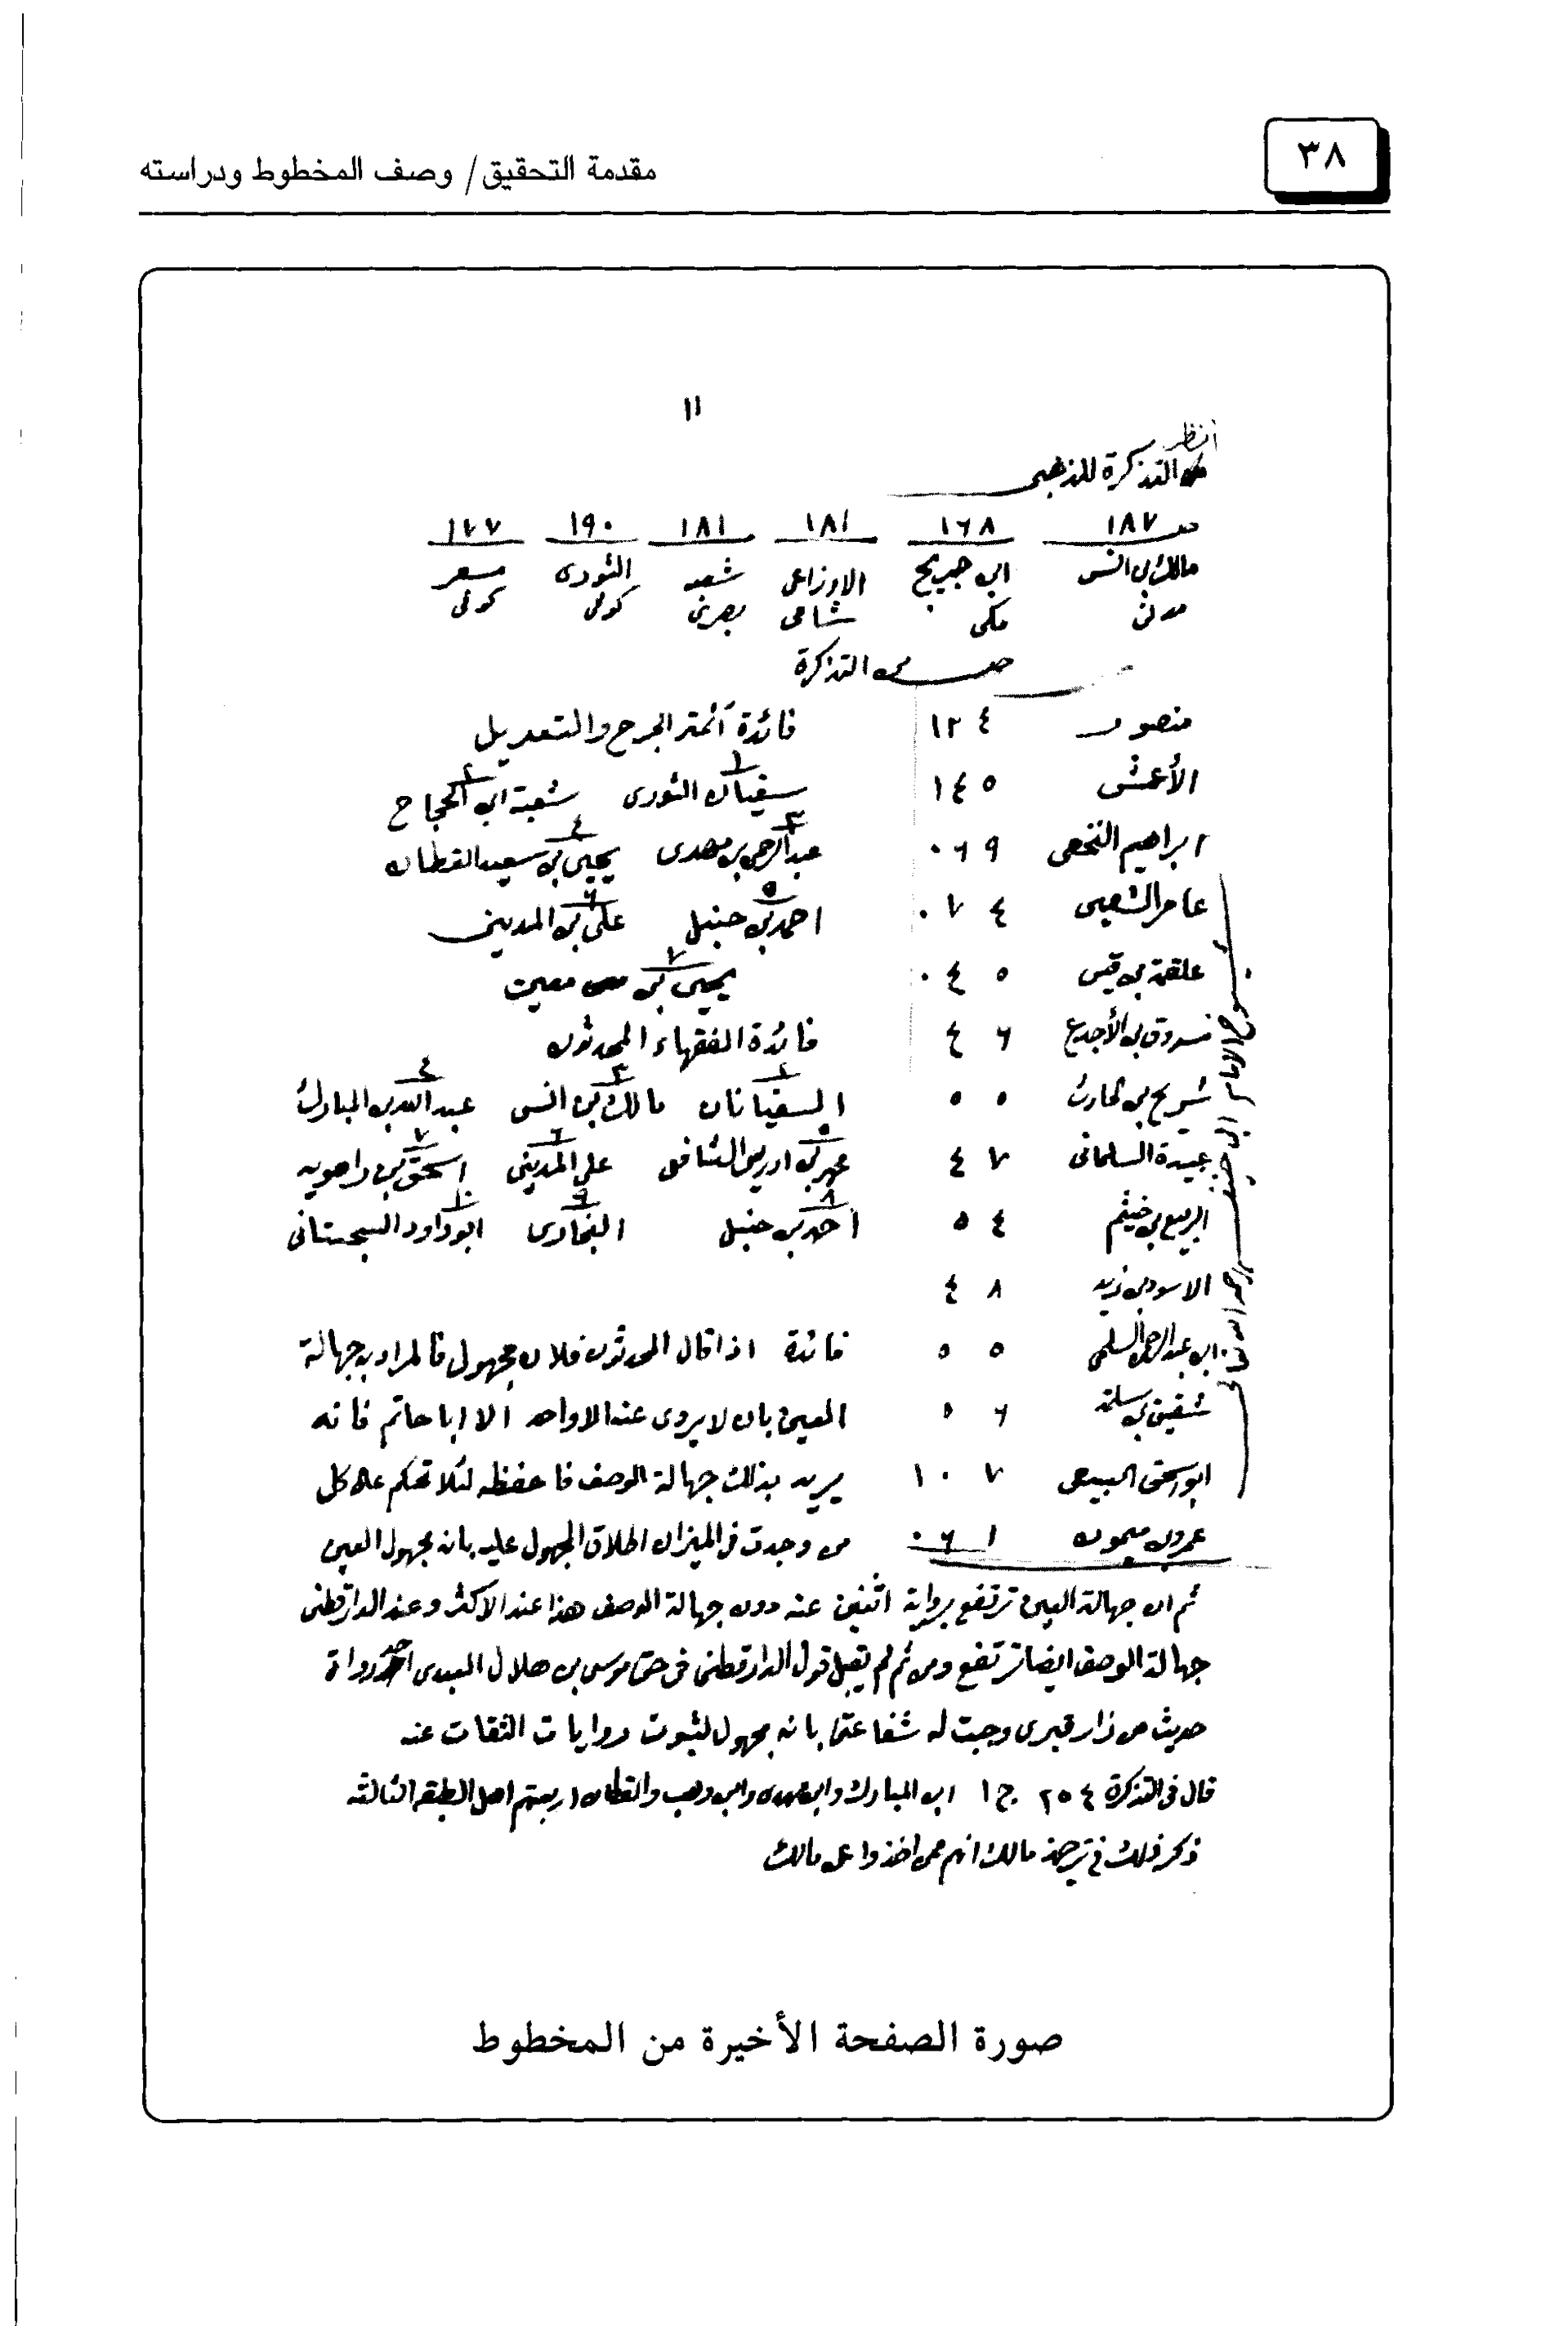 ٣٨
مقدمة التحقيق/ وصف المخطوط ودراسته
١١
انظر
من التذكرة للذهبى
صـ ١٨٧ ١٦٨ ١٨١ ١٨١ ١٩٠ ١٧٧
مالك بن انس ابن جريج الاوزاعى شعبه الثورى مسعر
مدنى مكى شامى بصرى كوفى كوفى
صـ من التذكرة
منصور ١٢٤ فائدة أئمة الجرح والتعديل
الأعمش ١٤٥ سفيان الثورى ١ شعبة ابن الحجاج ٢
ابراهيم النخعى ٠٦٩ عبدالرحمن بن مهدى ٣ يحيى بن سعيد القطان ٤
عامر الشعبى ٠٧٤ احمد بن حنبل ٥ على بن المدينى ٦
علقمة بن قيس ٠٤٥ يحيى بن معين ٧
مسروق بن الأجدع ٤٦ فائدة الفقهاء المحدثون
شريح بن الحارث ٥٥ السفيانان ٢ مالك بن انس ٣ عبد الله بن المبارك ٤
عبيدة السلمانى ٤٧ محمد بن ادريس الشافعى ٥ على المدينى ٦ اسحق بن راهويه ٧
الربيع بن خيثم ٥٤ أحمد بن حنبل ٨ البخارى ٩ ابو داود السجستانى ١٠
الاسود بن زيد ٤٨
ابى عبد الرحمن السلمى ٥٥ فائدة اذا قال المحدثون فلان مجهول فالمراد به جهالة
شقيق بن سلمة ٥٦ العين بان لا يروى عنه الا واحد الا ابا حاتم فانه
ابو اسحق السبيعى ١٠٧ يريد بذلك جهالة الوصف فاحفظه لئلا تحكم على كل
عمرو بن ميمون ٠٦١ من وجدت فى الميزان اطلاق المجهول عليه بانه مجهول العين
شيوخ الامام ابى حنيفه رحمه الله تعالى
ثم ان جهالة العين ترتفع برواية اثنين عنه دون جهالة الوصف هذا عند الاكثر وعند الدارقطنى
جهالة الوصف ايضا ترتفع ومن ثم لم يقبل قول الدارقطنى فى حق موسى بن هلال العبدى احد رواة
حديث من زار قبرى وجبت له شفاعتى بانه مجهول لثبوت روايات الثقات عنه
قال فى التذكرة ٢٥٤ ج ١ ابن المبارك وابن مهدى وابن وهب والقطان اربعتهم اهل الطبقه الثالثه
ذكر ذلك فى ترجمة مالك انهم ممن اخذوا عن مالك
صورة الصفحة الأخيرة من المخطوط